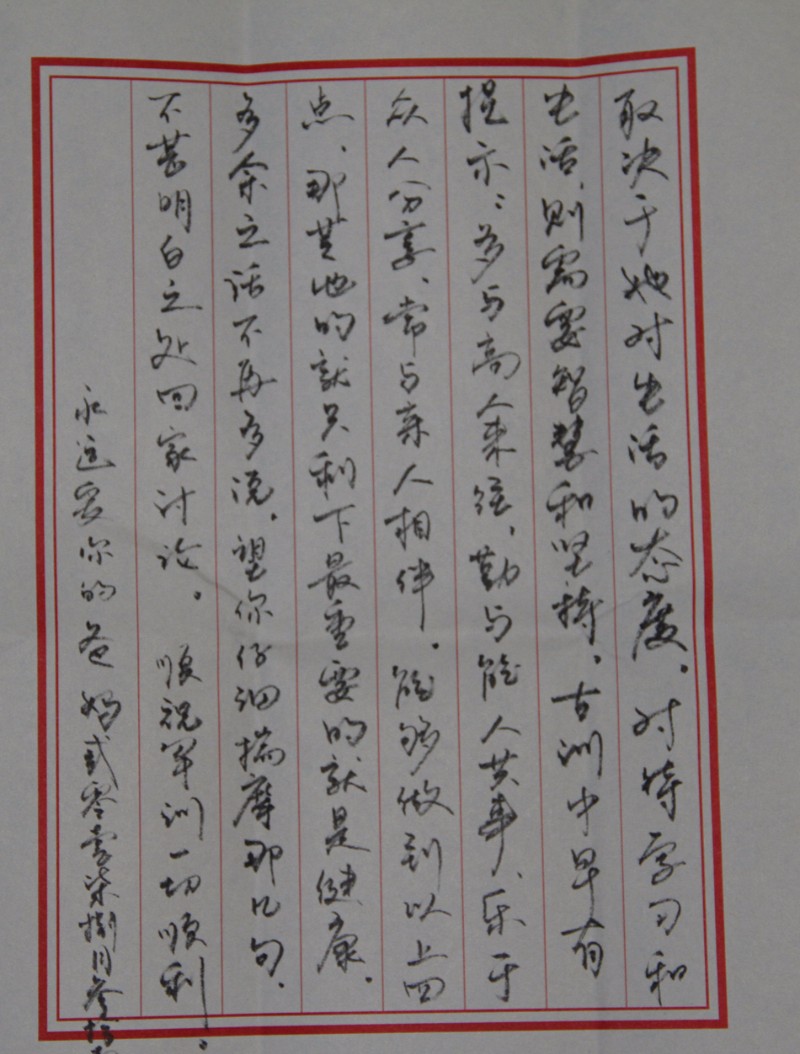 取决于她对生活的态度。对待学习和
生活，则需要智慧和坚持。古训中早有
提示：多与高人来往、勤与能人共事、乐于
众人分享、常与亲人相伴。能够做到以上四
点、那其他的就只剩下最重要的就是健康。
多余之话不再多说，望你仔细揣摩那几句，
不甚明白之处回家讨论。 顺祝军训一切顺利。
永远爱你的爸妈 贰零零柒捌月叁拾